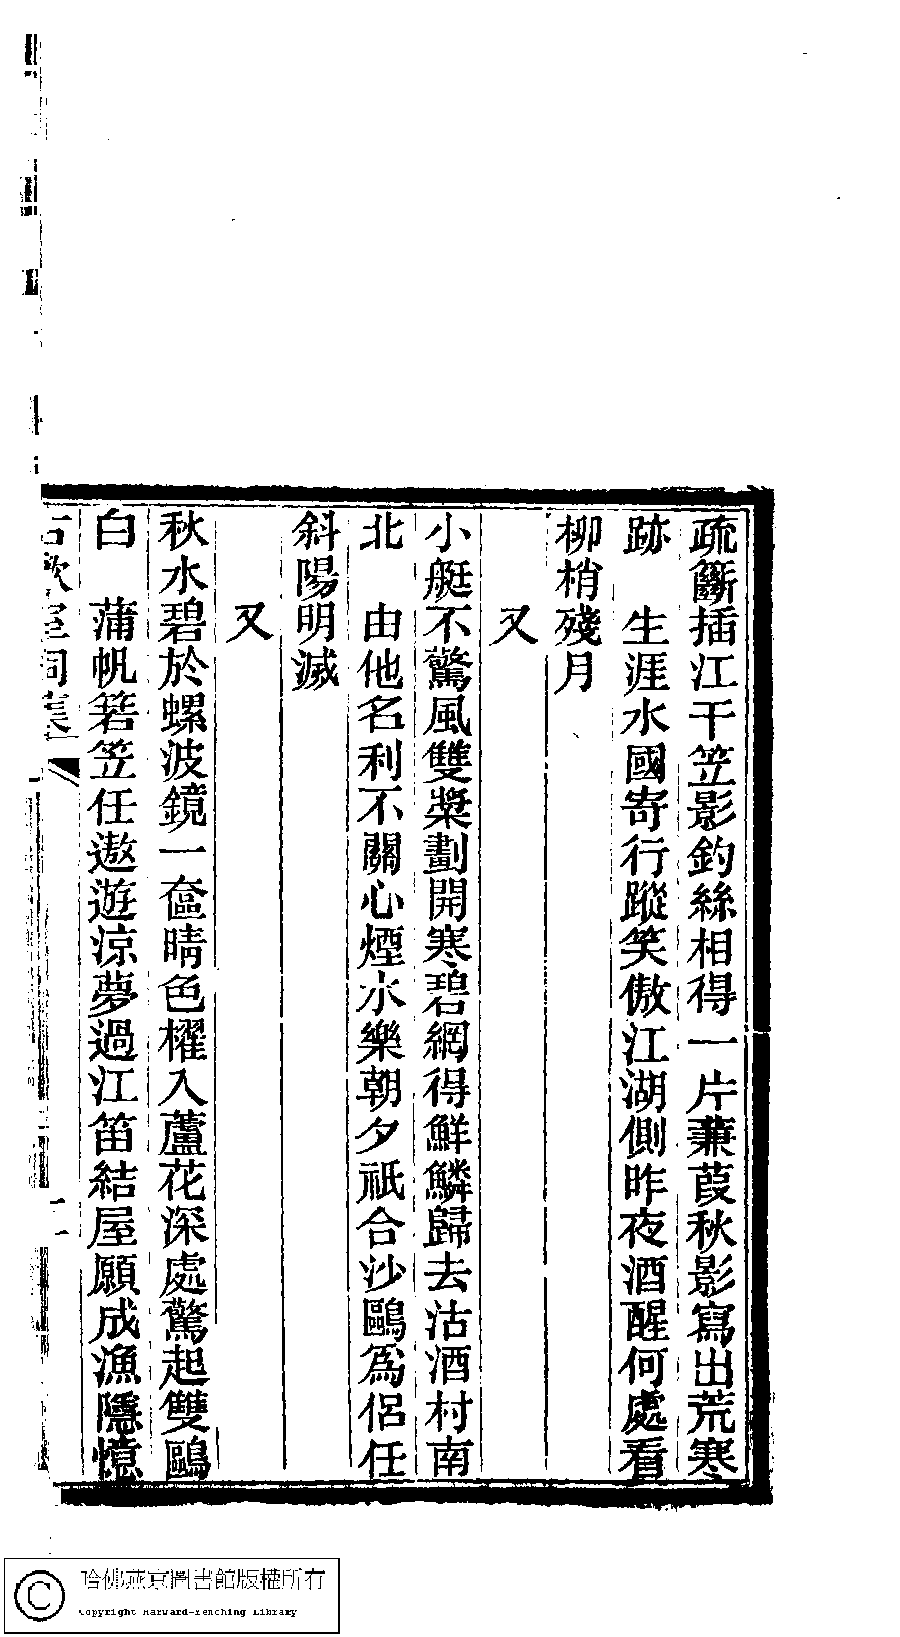 疏籪插江干笠影釣絲相得一片蒹葭秋影寫出荒寒
跡　生涯水國寄行蹤笑傲江湖側昨夜酒醒何處看
柳梢殘月
又
小艇不驚風雙槳劃開寒碧網得鮮鱗歸去沽酒村南
北　由他名利不關心煙水樂朝夕祇合沙鷗爲侶任
斜陽明滅
又
秋水碧於螺波鏡一奩晴色櫂入蘆花深處驚起雙鷗
白　蒲帆箬笠任遨遊涼夢過江笛結屋願成漁隱憶
哈佛燕京圖書館版權所有
Copyright Harvard-Yenching Library